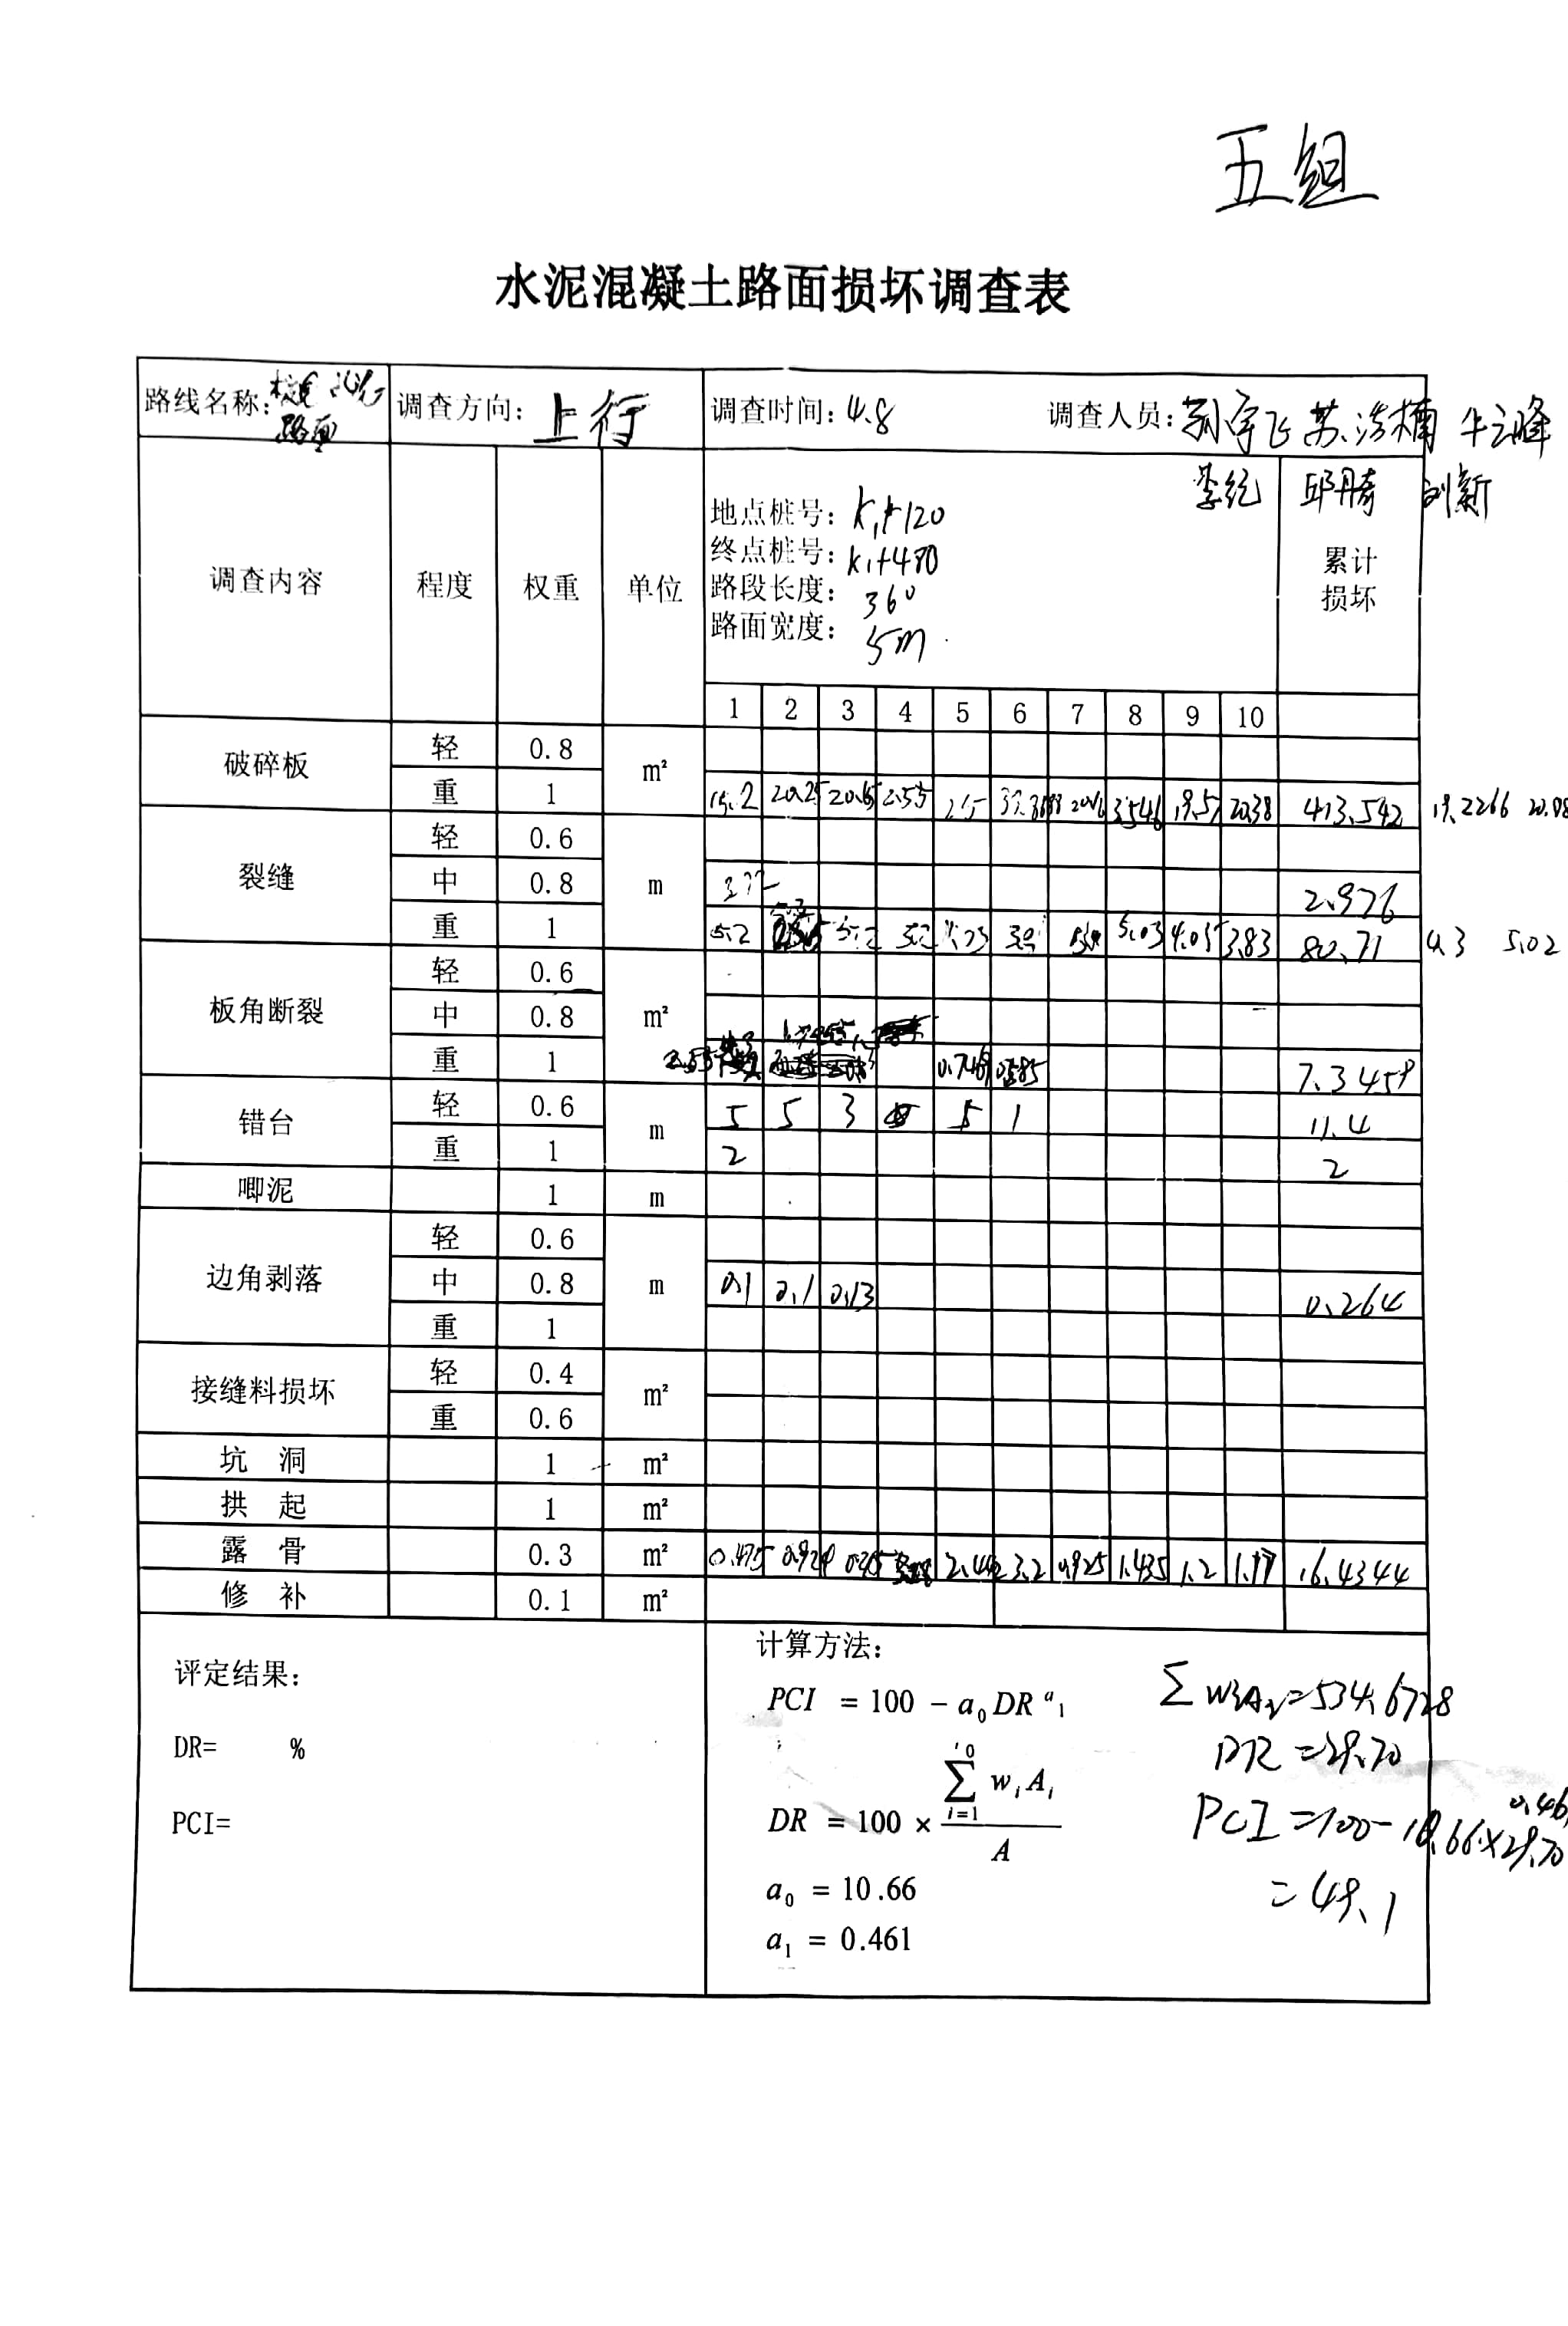 五组
水泥混凝土路面损坏调查表
路线名称: 路面 调查方向: 上行 调查时间: 4.8 调查人员: 苏浩楠 牛云峰
李纪 邱丹奇 刘新
调查内容 程度 权重 单位 累计损坏
地点桩号: K1+120
终点桩号: K1+480
路段长度: 360
路面宽度: 5m
1 2 3 4 5 6 7 8 9 10
破碎板 轻 0.8 m²
重 1 15.2 20.25 20.65 2.55 19.57 20.38 413.542 19.2266
裂缝 轻 0.6 m
中 0.8 2.976
重 1 5.2 5.03 4.05 3.83 80.71 4.3 5.02
板角断裂 轻 0.6 m²
中 0.8
重 1 0.749 7.3458
错台 轻 0.6 m 5 5 3 5 1 11.4
重 1 2 2
唧泥 1 m
边角剥落 轻 0.6 m
中 0.8 0.1 0.1 0.13 0.264
重 1
接缝料损坏 轻 0.4 m²
重 0.6
坑 洞 1 m²
拱 起 1 m²
露 骨 0.3 m² 0.475 0.924 3.2 0.925 1.435 1.2 1.17 16.4344
修 补 0.1 m²
评定结果:
DR= %
PCI=
计算方法:
PCI = 100 - a₀DR^a₁
DR = 100 × Σ wᵢAᵢ / A
a₀ = 10.66
a₁ = 0.461
=534.6728
DR=29.70
PCI=100-10.66×29.70
=49.1